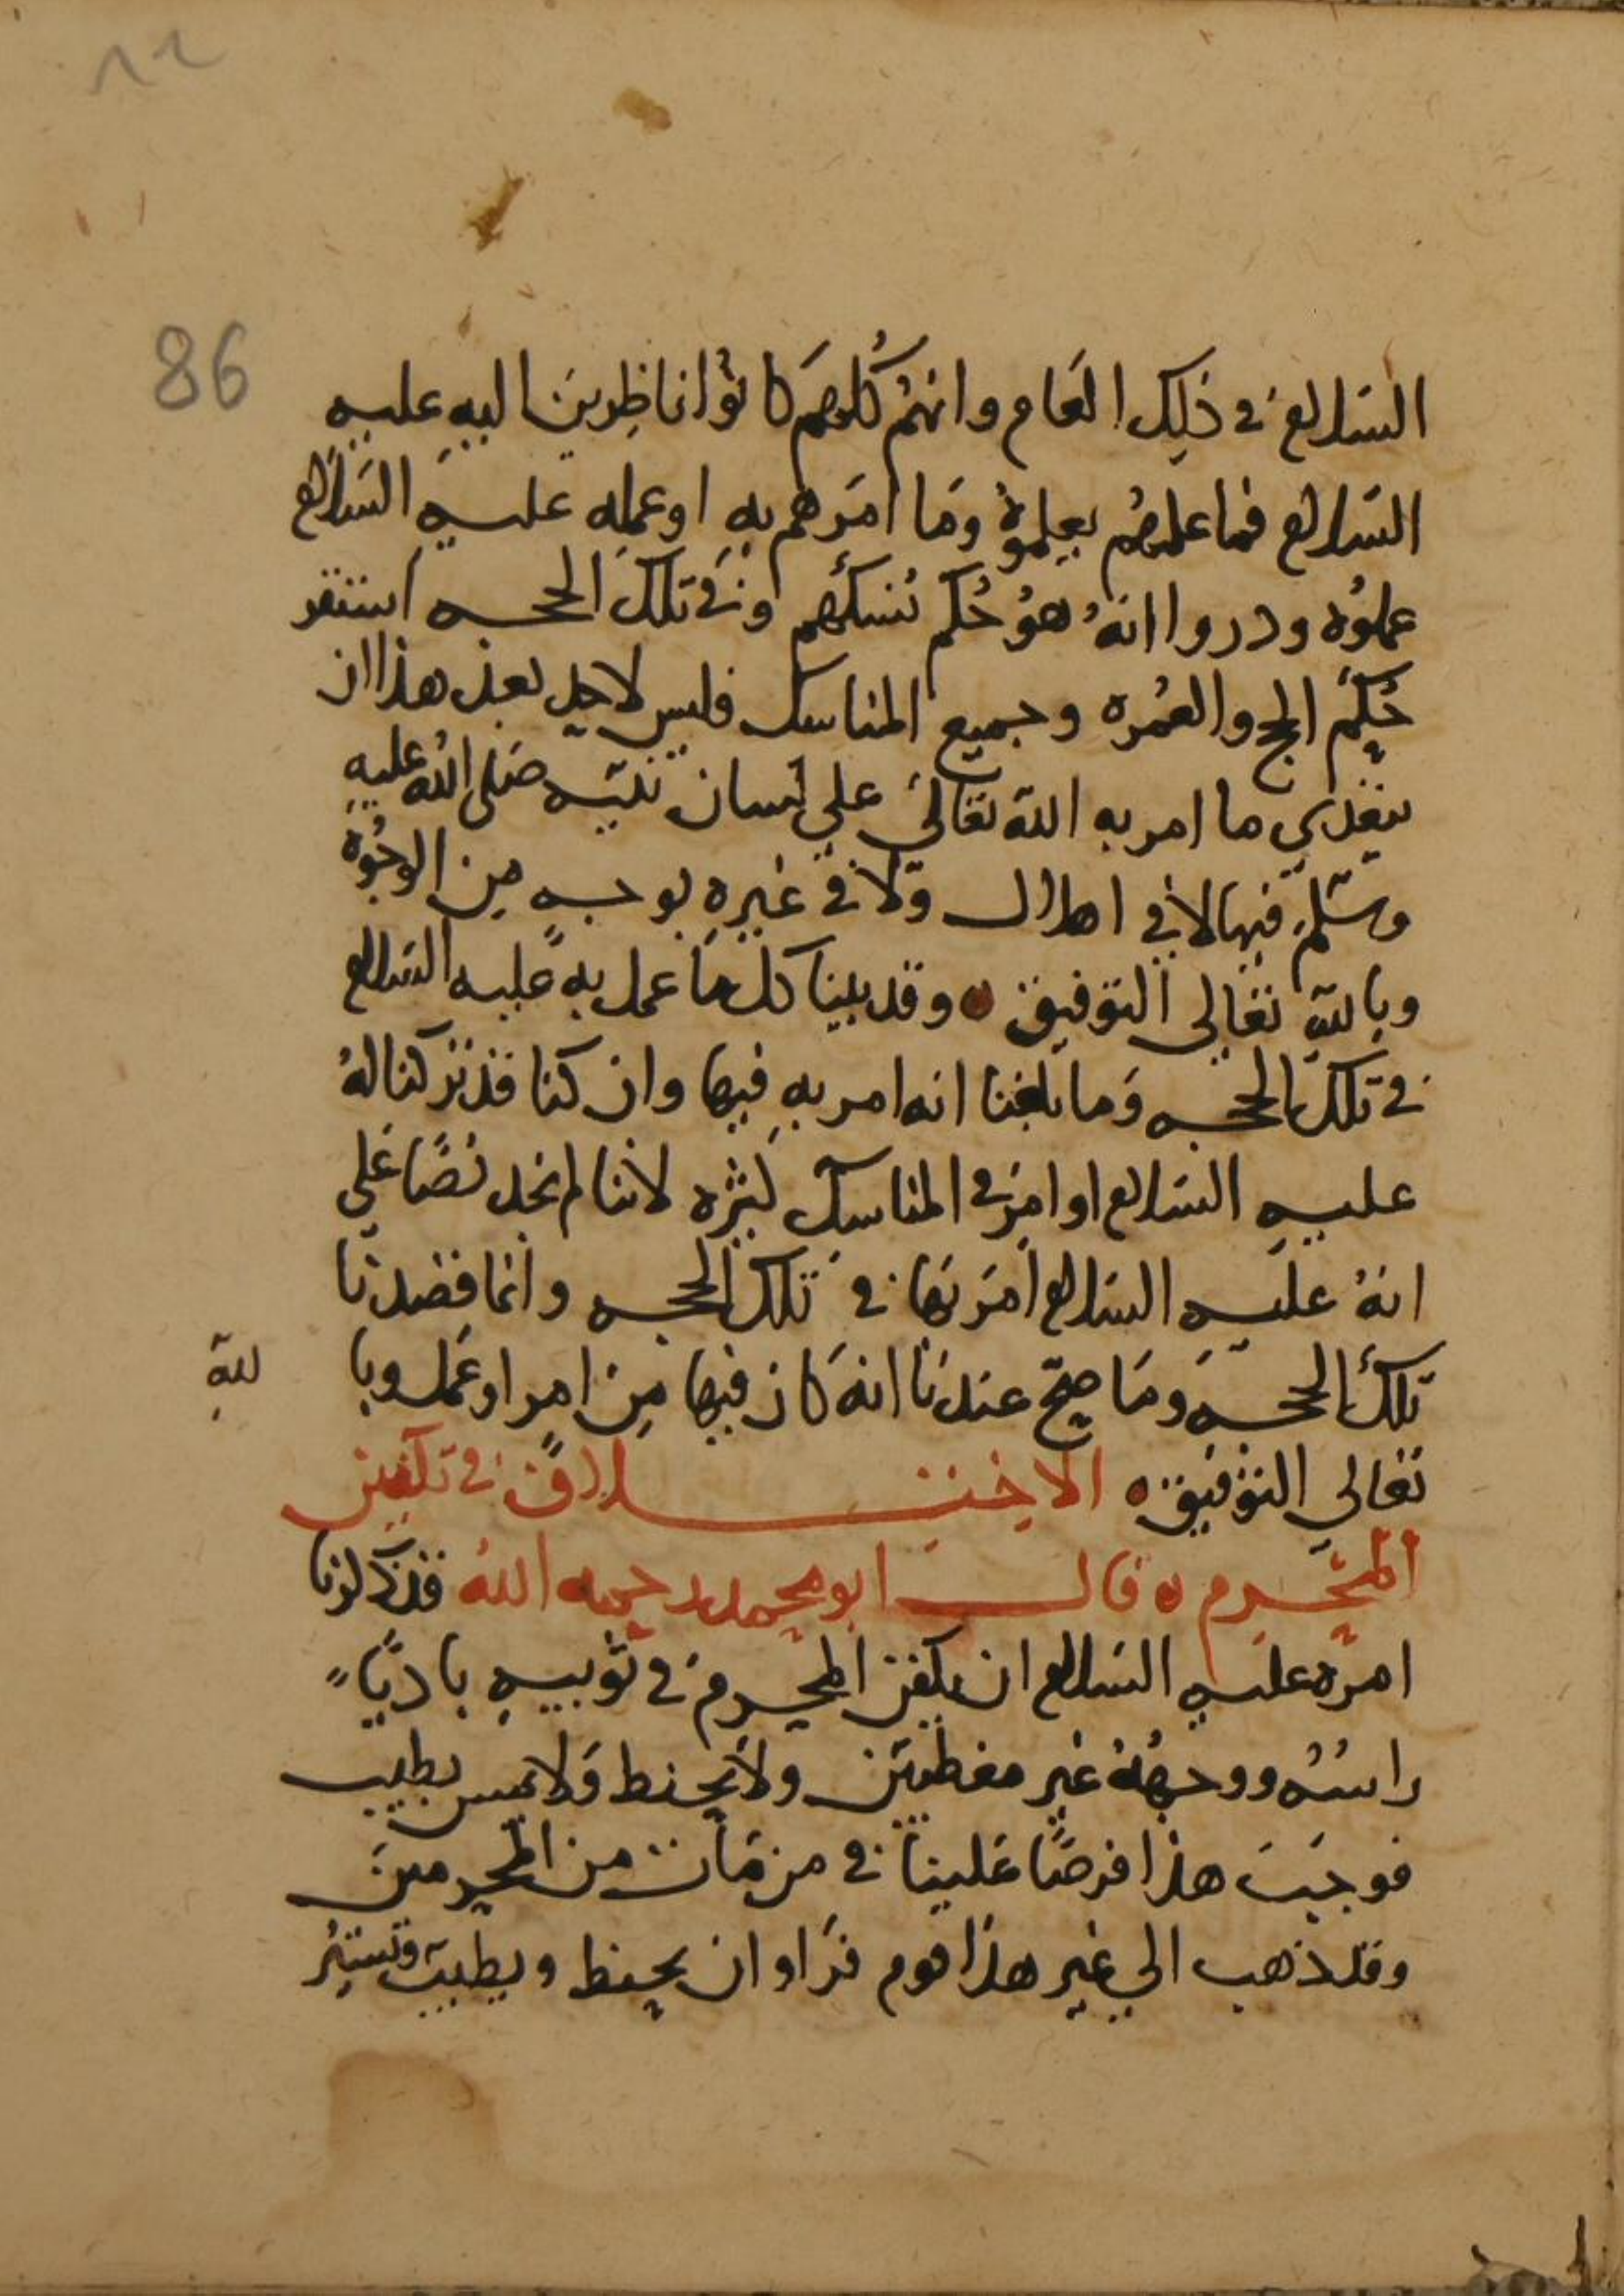 86
السلام في ذلك العام وانهم كلهم كانوا ناظرين اليه عليه
السلام فما علمهم بعلموه وما امرهم به او عمله عليه السلام
عملوه ودروا انه هو حكم نسكهم وفي تلك الحجه استقر
حكم الحج والعمره وجميع المناسك فليس لاحد بعد هذا ان
يتعدي ما امر به الله تعالي علي لسان نبيه صلى الله عليه
وسلم فيها لا في اهلال ولا في غيره بوجه من الوجوه
وبالله تعالى التوفيق ه وقد بينا كل ما عمل به عليه السلام
في تلك الحجه وما بلغنا انه امر به فيها وان كنا قد تركنا له
عليه السلام اوامر في المناسك كثيره لاننا لم نجد نصا علي
انه عليه السلام امر بها في تلك الحجه وانما قصدنا
تلك الحجه وما صح عندنا انه كان فيها من امر او عمل وبا لله
تعالي التوفيق ه الاختلاف في تكفين
المحرم ه قال ابو محمد رحمه الله قد ذكرنا
امره عليه السلام ان يكفن المحرم في ثوبيه باديا
راسه ووجهه غير مغطيين ولا يحنط ولا يمس بطيب
فوجب هذا فرضا علينا في من مات من المحرمين
وقد ذهب الي غير هذا قوم فراوا ان يحنط ويطيب ويستر